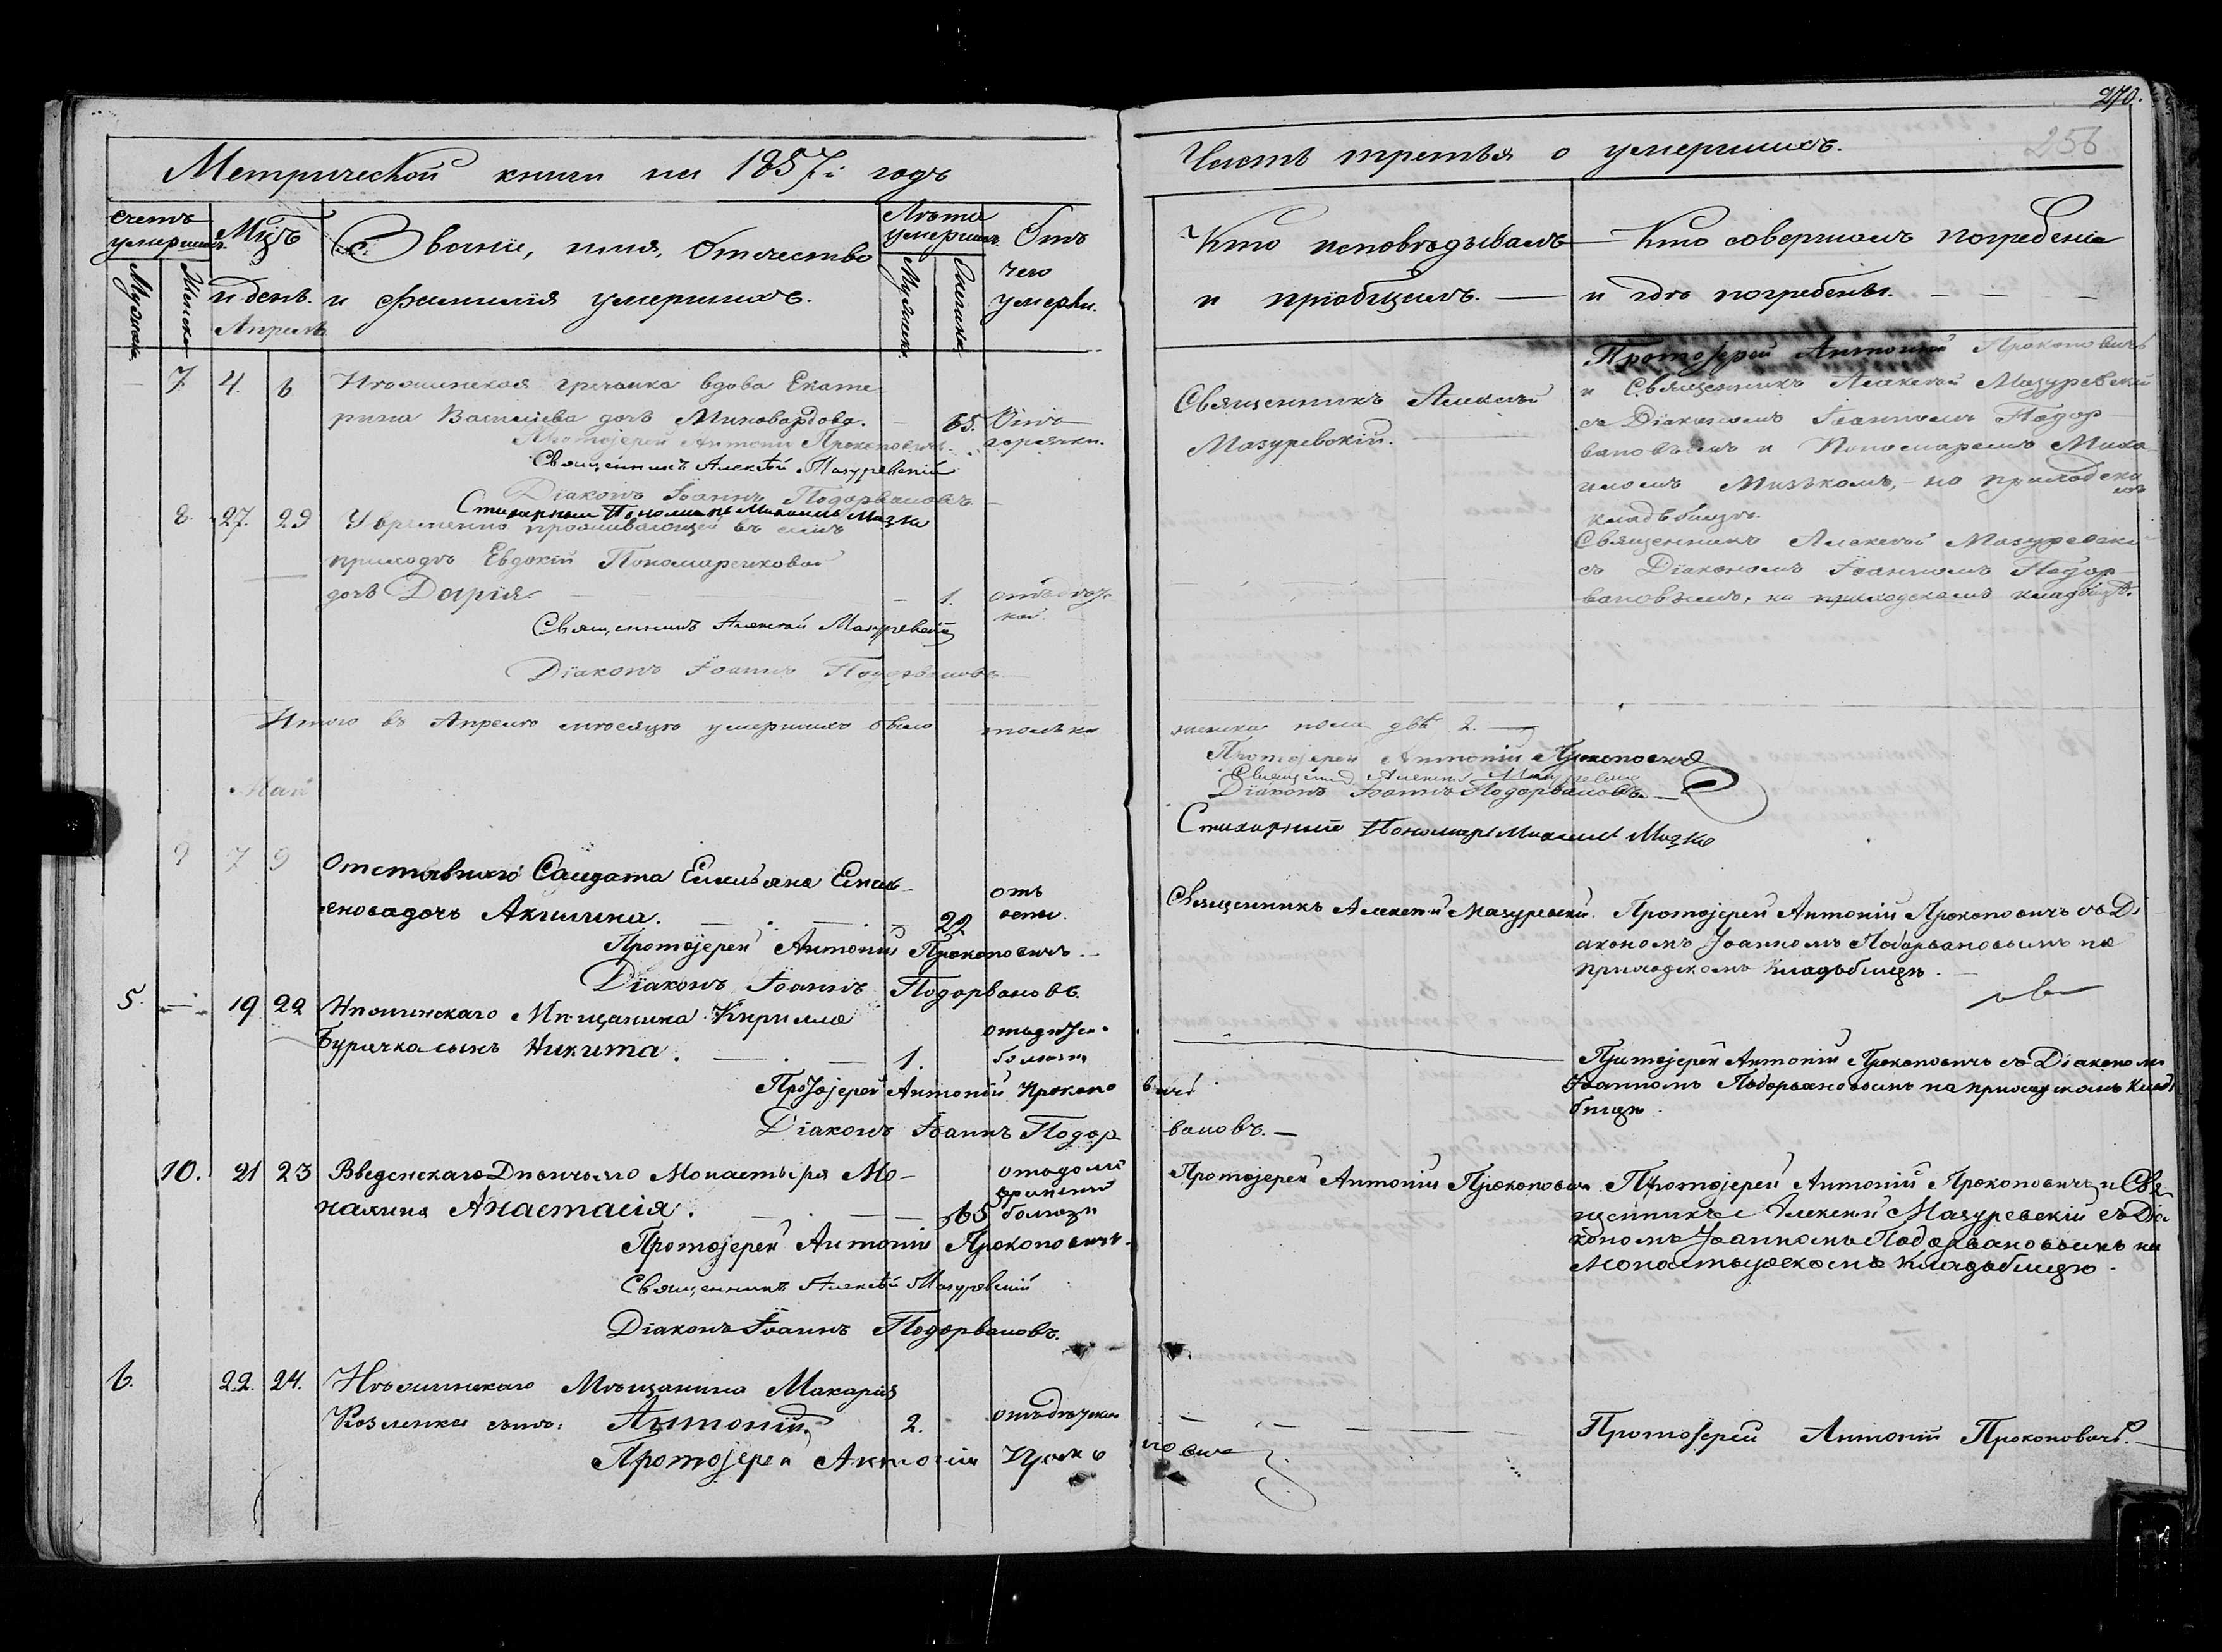 Метрической книги на 1857й годъ
счетъ умершихъ.
Мужска.
Женска
Мцъ
и день.
Апрель
Званіе, имя, Отечество
и фамилія умершихъ.
Лѣта умерших.
Мужеск.
Женска
Отъ
чего
умерли.
7. 4. 6 Нѣжинская гречанка вдова Екате
рина Васильева дочь — 65. Отъ
горячки.
Протоіерей Антоній Прокоповичъ.
Священникъ Алексѣй Мазуревскій
Діаконъ Іоаннъ Подорвановъ
Стихарный Пономарь Михаилъ Мизко
8. 27. 29 У временно проживающей въ семъ
приходѣ Евдокіи Пономаренковой
дочь Дарія. — 1.
Священникъ Алексѣй Мазуревскій
Діаконъ Іоаннъ Подорвановъ
Итого въ Апрелѣ мѣсяцѣ умершихъ было только
Май
9 7 9 Отставнаго Салдата Емельяна Емель
янова дочь Акилина. — 22. отъ
Протоіерей Антоній Прокоповичъ.
Діаконъ Іоаннъ Подорвановъ.
5. — 19 22 Нѣжинскаго Мѣщанина Кирилла
Бурячка сынъ Никита. — 1.
Протоіерей Антоній Прокопо
Діаконъ Іоаннъ Подор
10. 21 23 Введенскаго Дѣвичьяго Монастыря Мо-
нахиня Анастасія. — 65
болѣзни
Протоіерей Антоній Прокоповичъ.
Священникъ Алексѣй Мазуревскій
Діаконъ Іоаннъ Подорвановъ.
6. 22. 24. Нѣжинскаго Мѣщанина Макарія
Козленка сынъ: Антоній. 2.
Протоіерей Антоній Проко
270.
256
Часть третья о умершихъ.
Кто исповѣдывалъ
и пріобщалъ. —
Кто совершалъ погребеніе
и гдѣ погребены. — — —
Священникъ Алексѣй
Мазуревскій. — —
Протоіерей Антоній Прокоповичъ
и Священникъ Алексѣй Мазуревскій
съ Діакономъ Іоанномъ Подор
вановымъ и Пономаремъ Миха
иломъ Мизькомъ, — на приходско
мъ
кладбищѣ.
Священникъ Алексѣй Мазуревскій
съ Діакономъ Іоанномъ Подор-
вановымъ, на приходскомъ кладбищѣ.
женска пола двѣ 2. —
Протоіерей Антоній Прокоповичъ
Священникъ Алексѣй Мазуревскій
Діаконъ Іоаннъ Подорвановъ. —
Стихарный Пономарь Михаилъ Мизко
Священникъ Алексѣй Мазуревскій.
Протоіерей Антоній Прокоповичъ съ Ді
акономъ Іоанномъ Подорвановымъ на
приходскомъ кладьбищѣ. —
Протоіерей Антоній Прокоповичъ съ Діакономъ
Іоанномъ Подорвановымъ на приходскомъ кладь
бищѣ.
вичъ
вановъ. —
Протоіерей Антоній Прокоповичъ
Протоіерей Антоній Прокоповичъ и Свя
щенникъ Алексѣй Мазуревскій съ Діа
кономъ Іоанномъ Подорвановымъ на
Монастырскомъ кладьбищѣ.
повичъ
Протоіерей Антоній Прокоповичъ. —